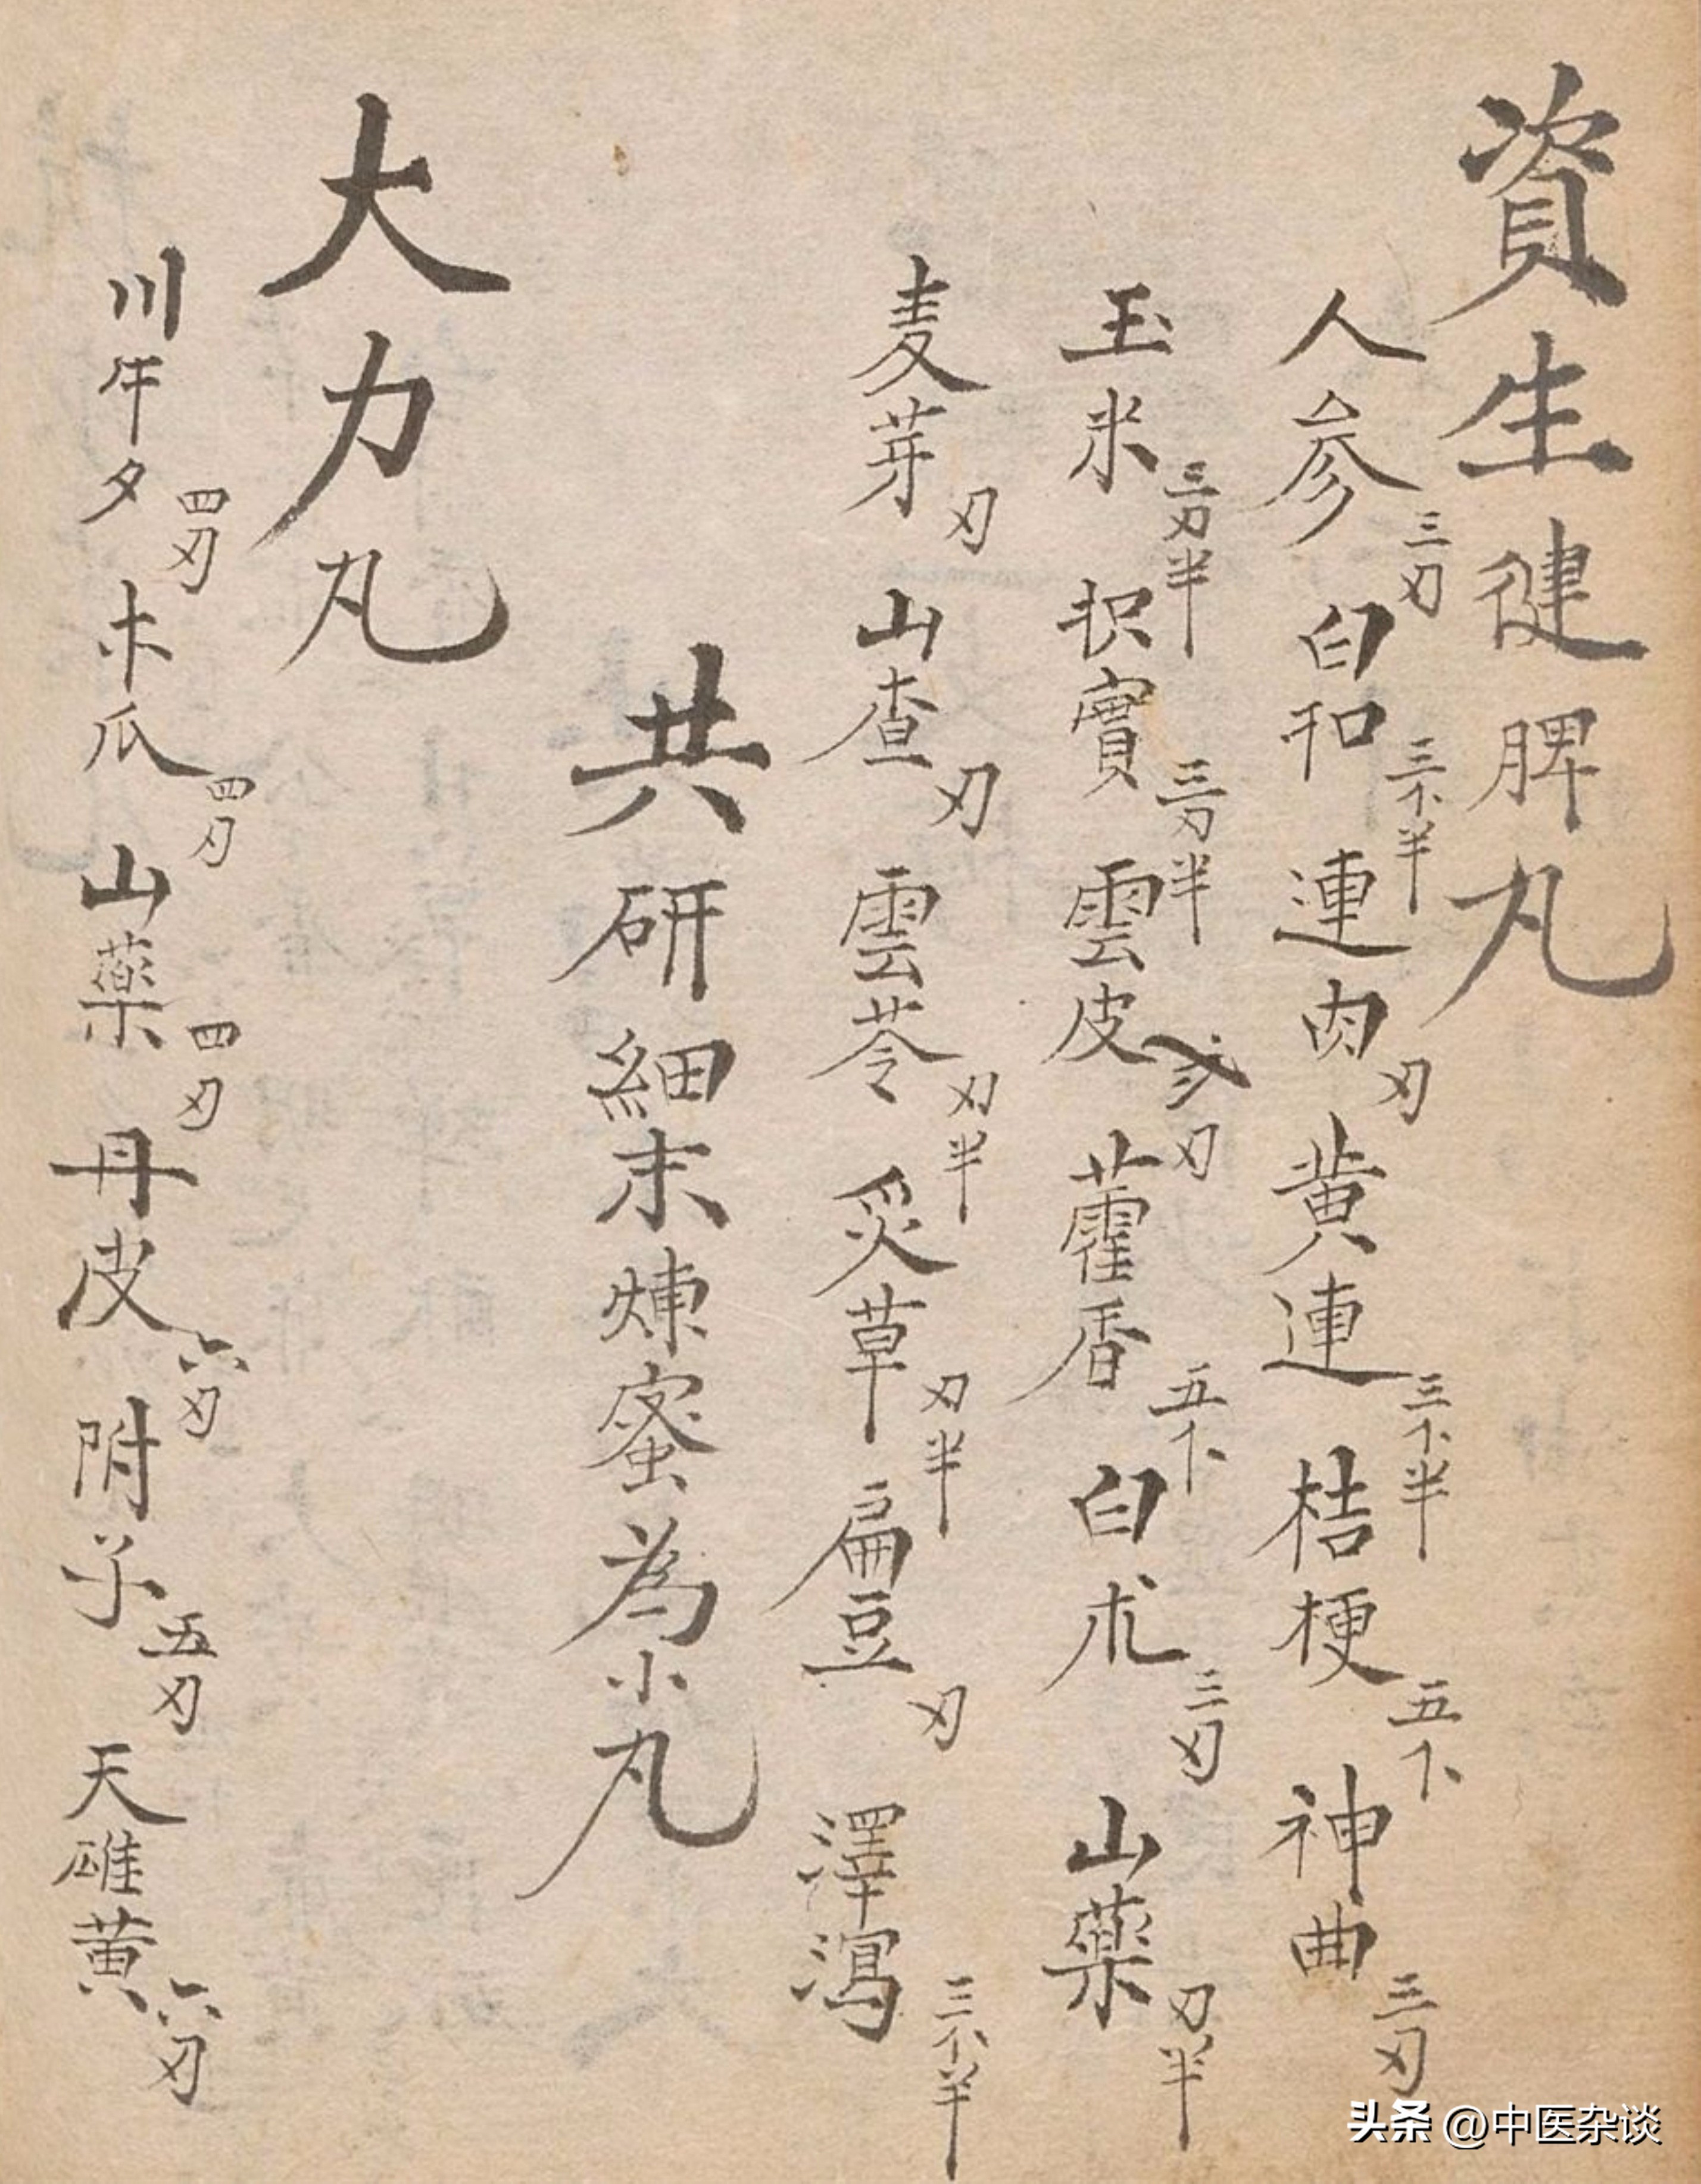 資生健脾丸
人參三刃 白和三个半 連肉刃 黄連三个半 桔梗五个 神曲三刃
玉米三刃半 枳實三刃半 雲皮刃 藿香五个 白朮三刃 山藥刃半
麦芽刃 山查刃 雲苓刃半 炙草刃半 扁豆刃 澤瀉三个半
共研細末煉蜜為小丸
大力丸
川牛夕四刃 木瓜四刃 山藥四刃 丹皮六刃 附子五刃 天雄黄六刃
头条 @中医杂谈